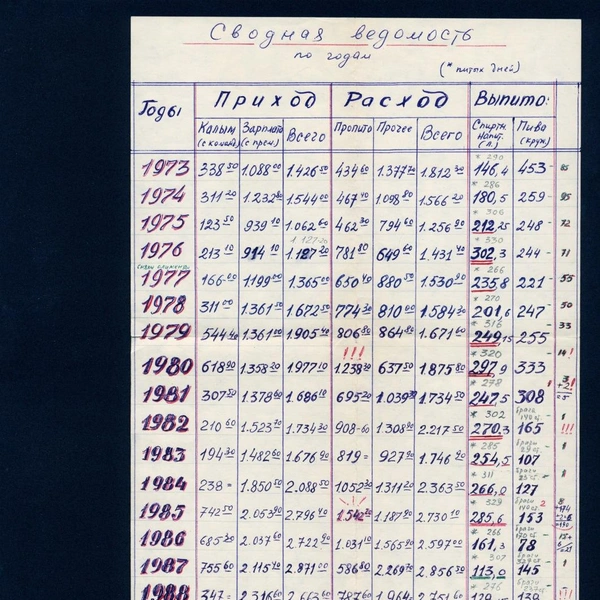 Сводная ведомость
по годам
(* питых дней)
Годы Приход Расход Выпито:
Калым (с команд) Зарплата (с прем.) Всего Пропито Прочее Всего Спиртн. напит. (л.) Пива (круж)
* 290
1973 338 50 1.088 00 1.426 50 434 60 1.377 70 1.812 30 146,4 453 - 85
* 286
1974 311 20 1.232 80 1.544 00 467 40 1.098 80 1.566 20 180,5 259 - 95
* 306
1975 123 50 939 10 1.062 60 462 30 794 60 1.256 90 212,25 248 - 72
1.127-20 * 330
1976 213 10 914 10 1.127 20 781 80 649 60 1.431 40 302,3 244 - 71
* 266
1977 166-00 1199 00 1.365 00 650 40 880 50 1.530 90 235,8 221 - 55
* 270
1978 311 00 1.361 50 1.672 50 774 30 810 00 1.584 30 201,6 247 - 50
* 316 33
1979 544 40 1.361 00 1.905 40 806 80 864 80 1.671 60 249,15 255
!!! * 320 14!
1980 618 90 1.358 20 1977 10 1.238 30 637 50 1.875 80 297,9 333
* 278
1981 307 50 1.378 60 1.686 10 695 20 1.039 30 1.734 50 247,5 308
* 302 брага
1982 210 60 1.523 70 1.734 30 908-60 1.308 90 2.217 50 270,3 165 !!!
* 285 брага
1983 194 30 1.482 60 1.676 90 819 = 927 90 1.746 90 254,5 107
* 311 брага
1984 238 = 1.850 50 2.088 50 1052 30 1.311 20 2.363 50 266,0 127
* 329 брага
1985 742 50 2.053 90 2.796 40 1.542 1.187 90 2.730 10 285,6 153
* 266
1986 685 30 2.037 60 2.722 90 1.031 10 1.565 90 2.597 00 161,3 78
* 307
1987 755 60 2.115 40 2.871 00 586 80 2.269 70 2.856 50 113,0 145
* 276
1988 347 = 2.316 60 2.663 60 787 60 1.964 2.751 60 139